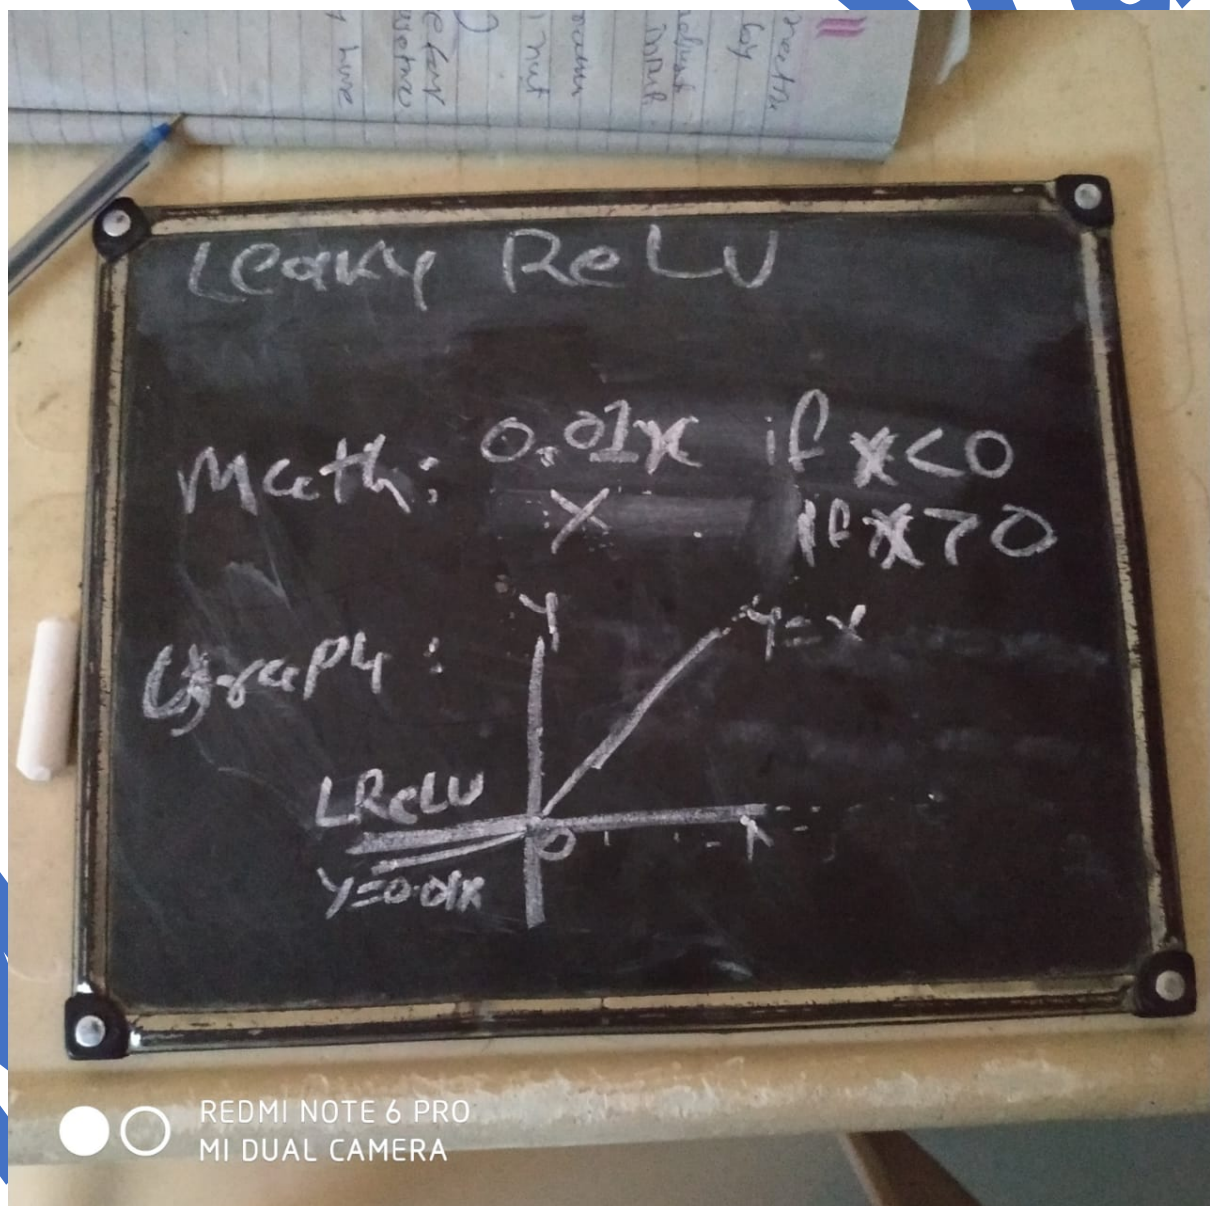 Leaky ReLU
Math: 0.01x if x<0
X if x>0
Graph:
Y
Y=X
LReLU
0
X
Y=0.01x
REDMI NOTE 6 PRO
MI DUAL CAMERA